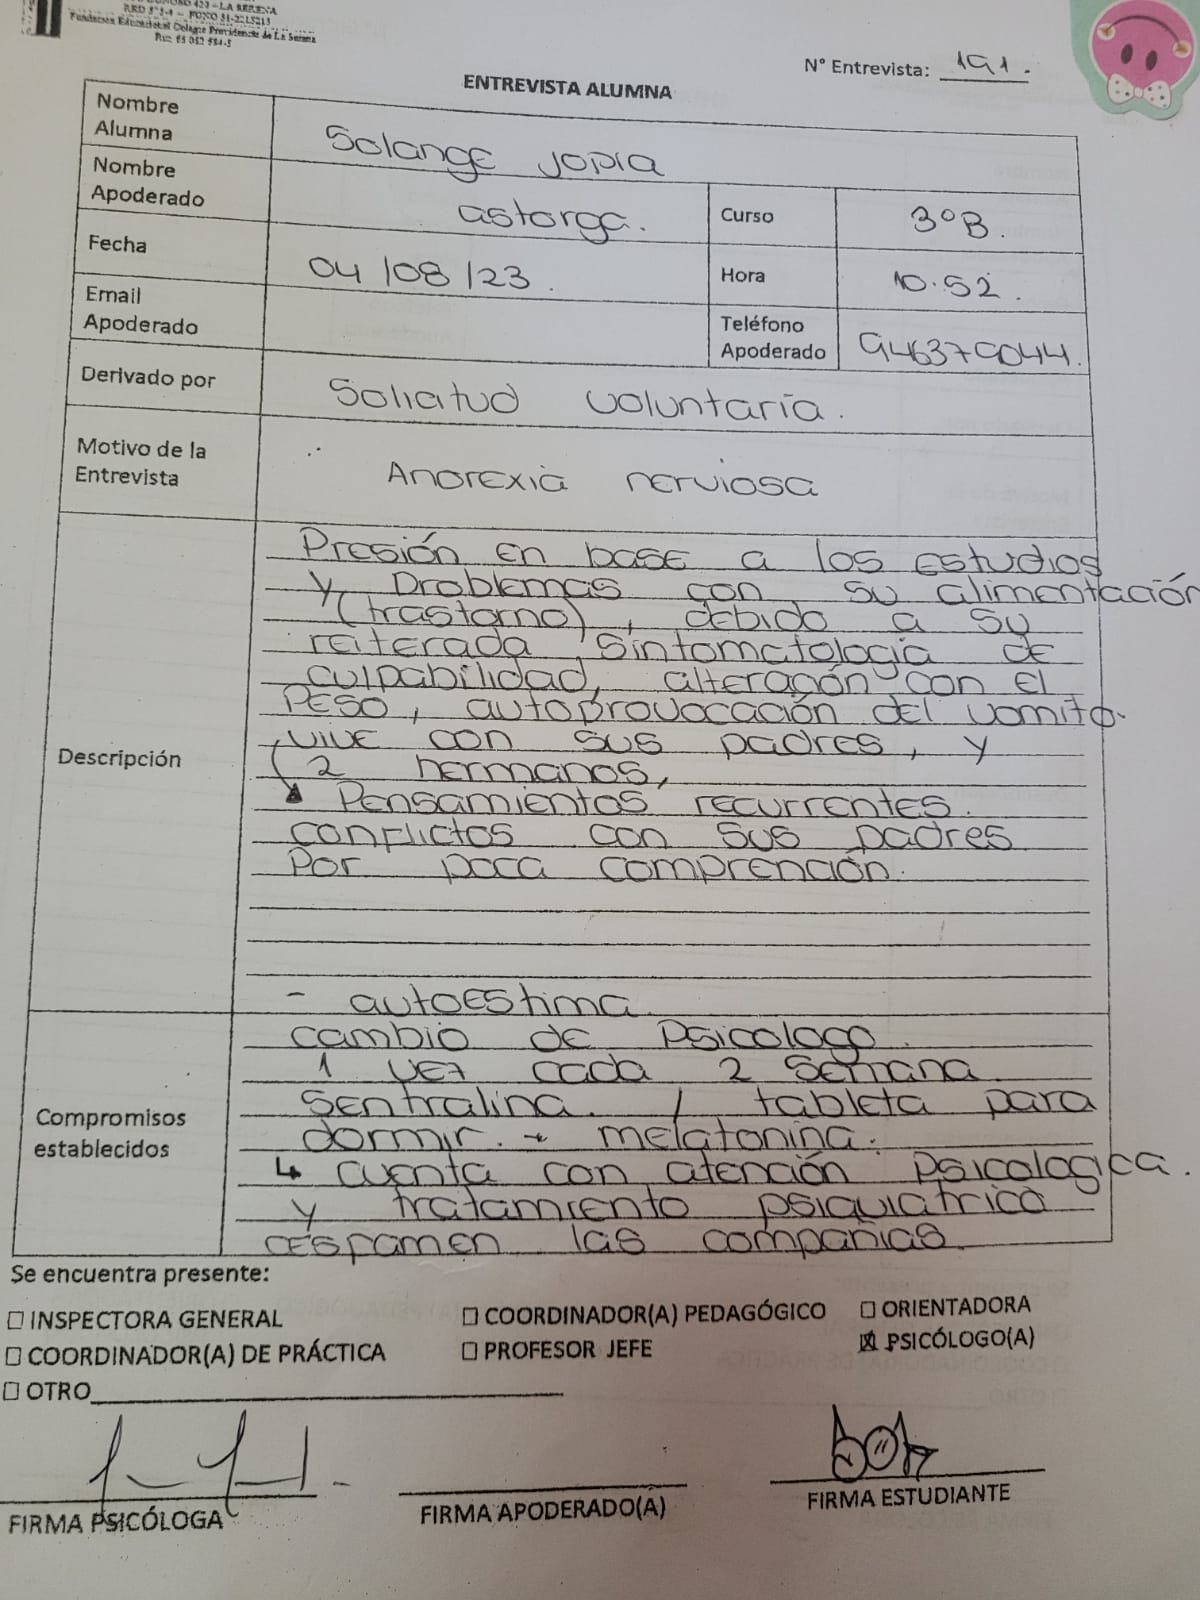 423 - LA SERENA
Fundación Educacional Colegio Providencia de La Serena
N° Entrevista: 191.
ENTREVISTA ALUMNA
Nombre Alumna
Solange Jopia
Nombre Apoderado
astorga.
Curso
3°B.
Fecha
04/08/23.
Hora
10.52.
Email Apoderado
Teléfono Apoderado
946379044.
Derivado por
Soliatud voluntaria.
Motivo de la Entrevista
Anorexia nerviosa
Descripción
Presión en base a los estudios
y problemas con su alimentación
(trastorno), debido a su
reiterada sintomatología de
culpabilidad, alteración con el
peso, autoprovocación del vomito.
vive con sus padres, y
2 hermanos,
Pensamientos recurrentes.
conflictos con sus padres
Por poca comprención.
- autoestima
Compromisos establecidos
cambio de Psicologo.
1 vez cada 2 semana.
Sentralina. / tableta para
dormir. + melatonina.
↳ cuenta con atención psicologica.
y tratamiento psiquiatrico
las compañias.
Se encuentra presente:
☐ INSPECTORA GENERAL
☐ COORDINADOR(A) PEDAGÓGICO
☐ ORIENTADORA
☐ COORDINADOR(A) DE PRÁCTICA
☐ PROFESOR JEFE
☒ PSICÓLOGO(A)
☐ OTRO
FIRMA PSICÓLOGA
FIRMA APODERADO(A)
FIRMA ESTUDIANTE